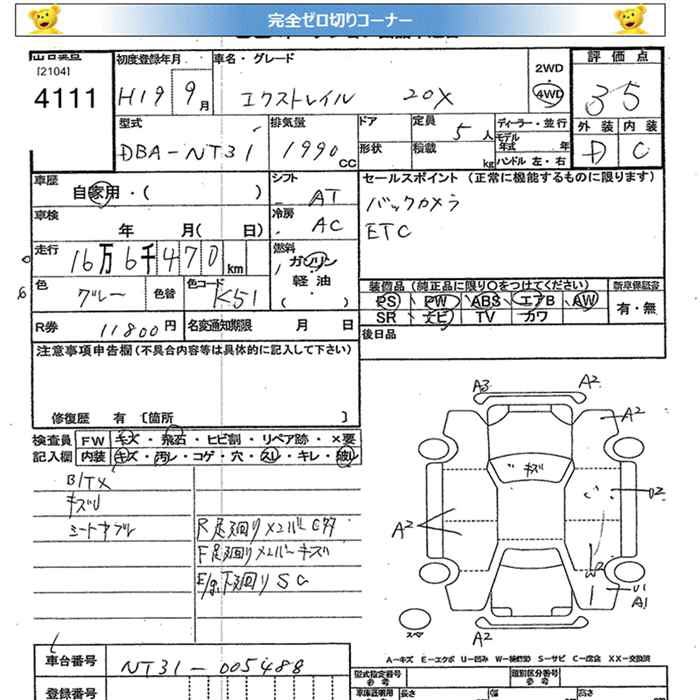 完全ゼロ切りコーナー
[2104]
4111
初度登録年月
H19 9月
車名・グレード
エクストレイル 20X
2WD
・
4WD
評価点
3 5
外装 内装
D C
型式
DBA-NT31
排気量
1990 CC
ドア
形状
定員
5人
積載
kg
ディーラー・並行
モデル
年式 年
ハンドル 左・右
車歴
自家用・( )
シフト
AT
セールスポイント (正常に機能するものに限ります)
バックカメラ
ETC
車検
年 月( 日)
冷房
AC
走行
16万6千470km
燃料
ガソリン
軽油
( ・ )
色
グレー
色替
色コード
K51
装備品(純正品に限り○をつけてください)
新車保証書
PS PW ABS エアB AW
SR ナビ TV カワ
有・無
R券
11800円
名変通知期限 月 日
後日品
注意事項申告欄(不具合内容等は具体的に記入して下さい)
修復歴 有 [箇所 ]
検査員
記入欄
FW キズ・飛石・ヒビ割・リペア跡・×要
内装 キズ・汚レ・コゲ・穴・スレ・キレ・破レ
キズ
R 足廻りメンバー
F 足廻りメンバーキズ
E/g,下廻り SG
A3 A2
A2
キズ
A2
W2
A1
スペ
A2
A-キズ E-エクボ U-凹み W-補修跡 S-サビ C-腐食 XX-交換済
車台番号
NT31-005488
登録番号
型式指定番号
参考
類別区分番号
参考
長さ
幅
高さ